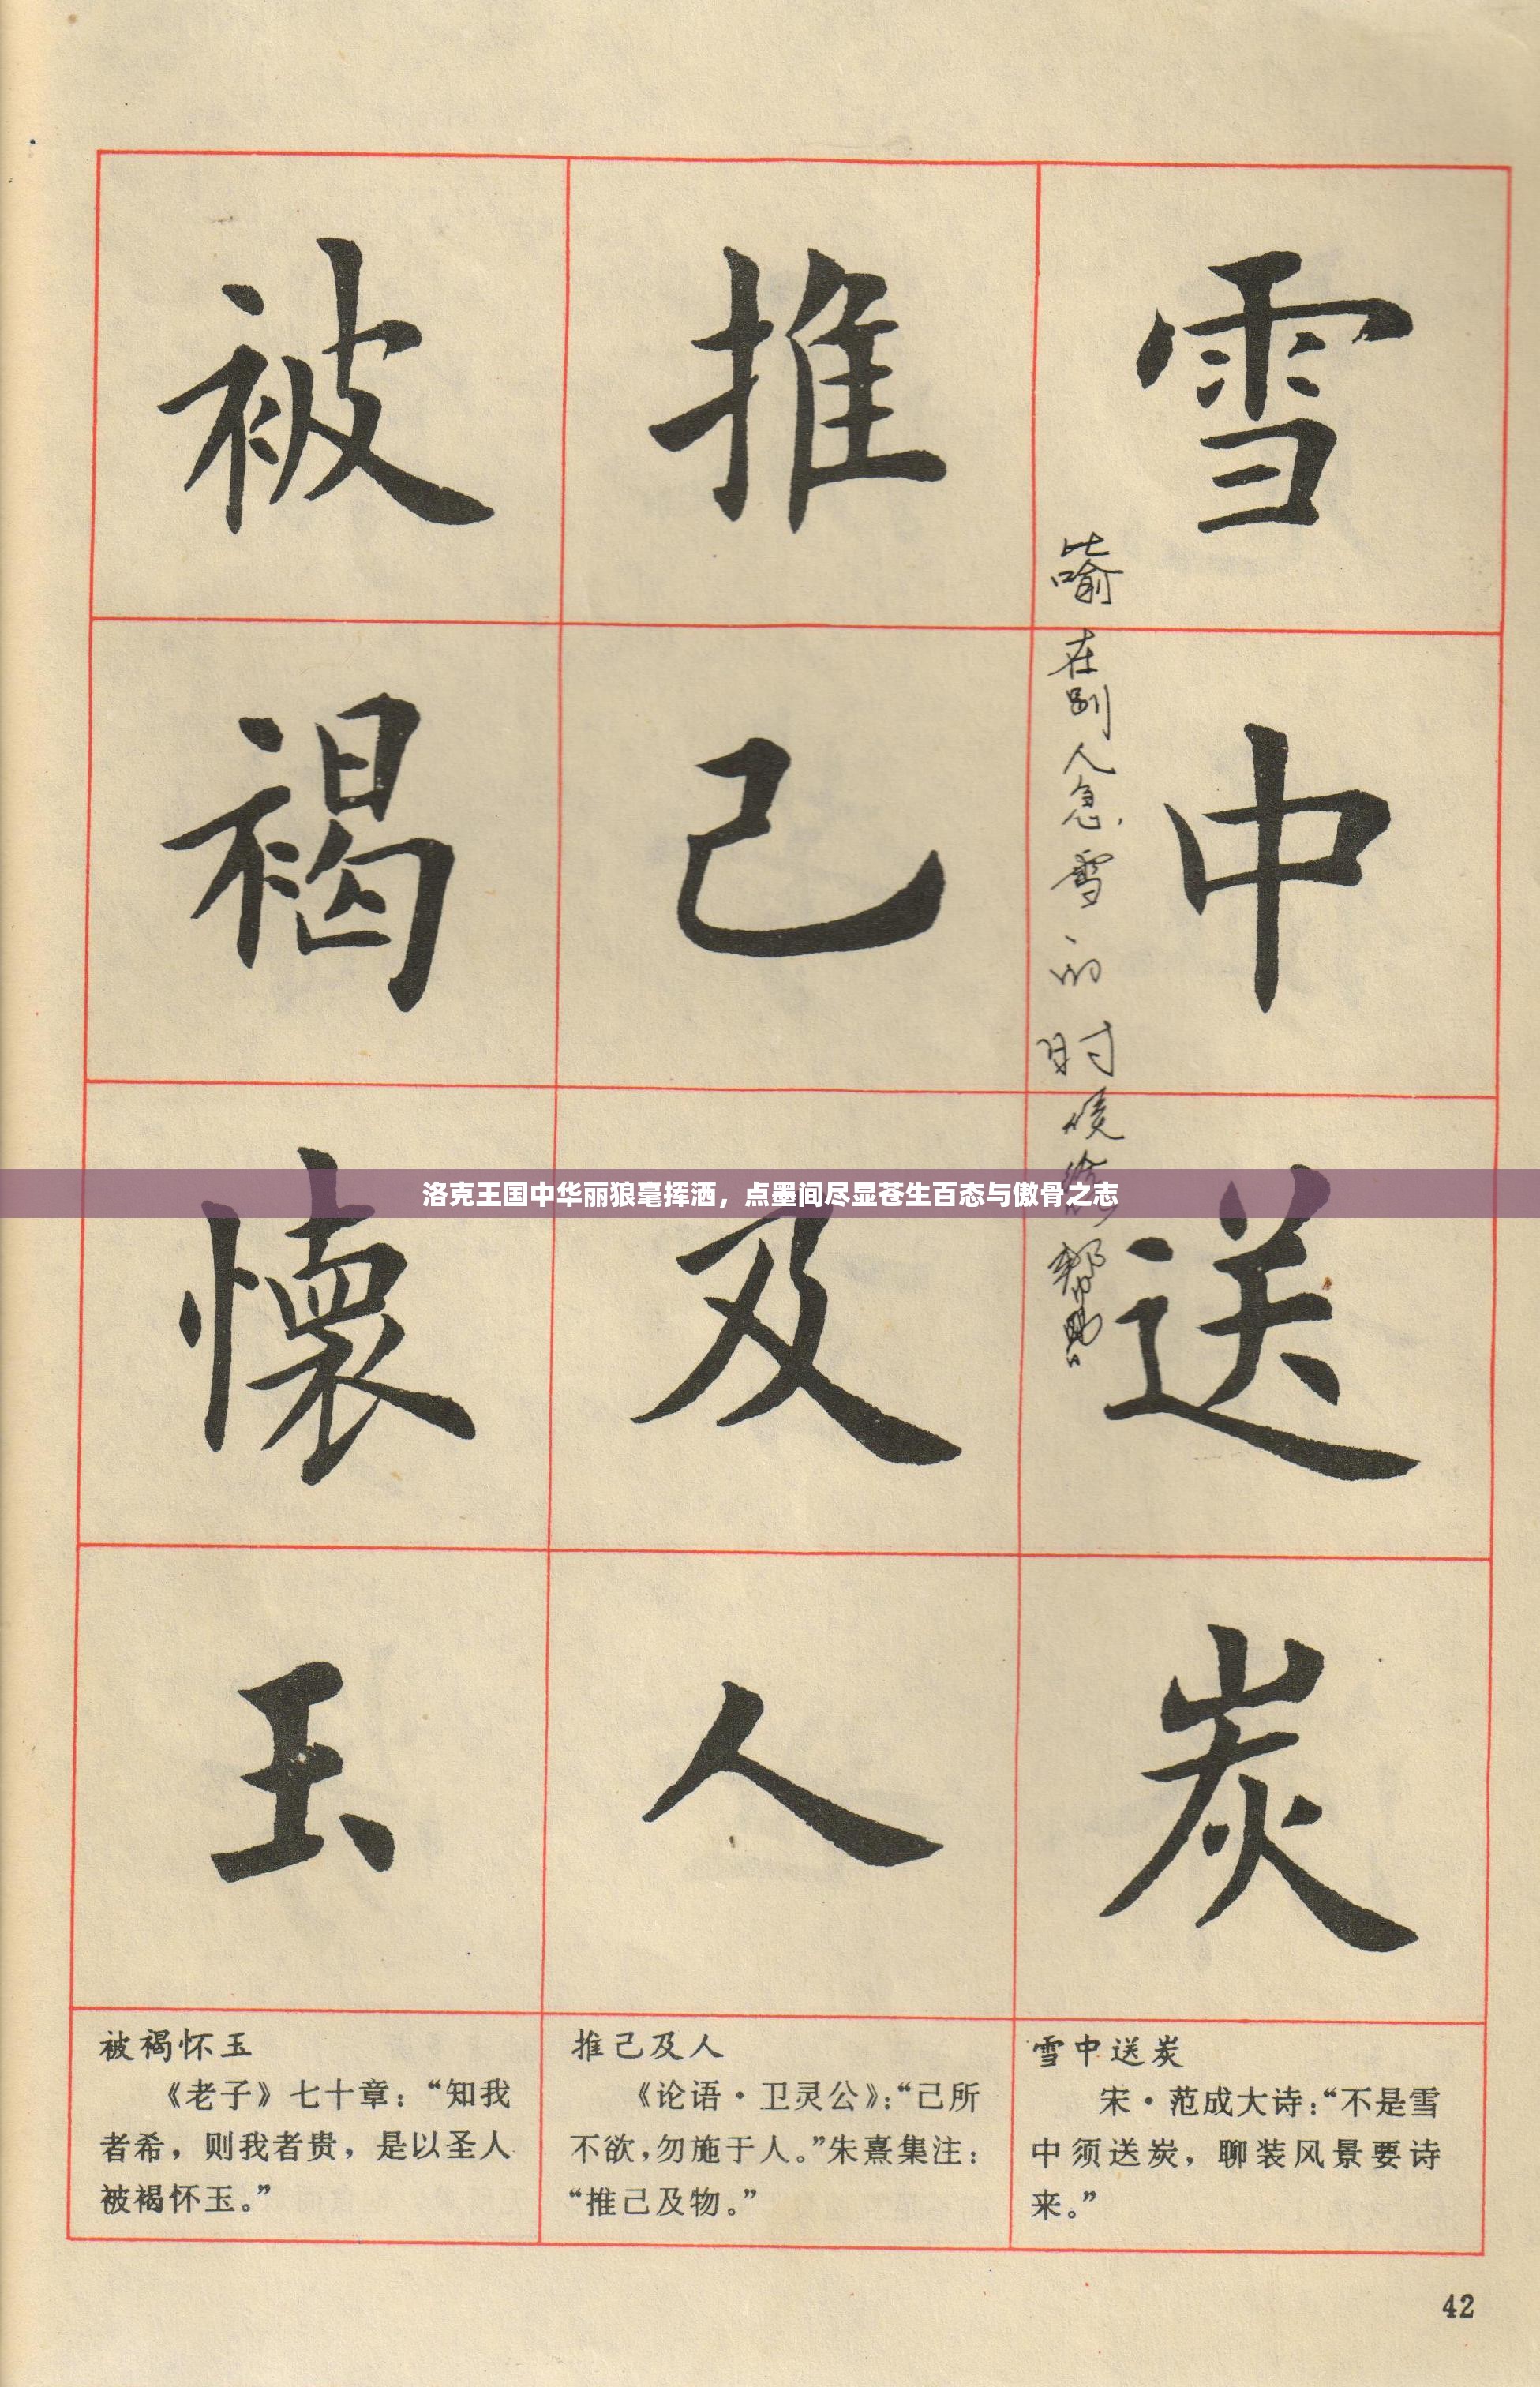 雪中送炭
推己及人
被褐懷玉
比喻在别人急雪的时候给的帮助
洛克王国中华丽狼毫挥洒，点墨间尽显苍生百态与傲骨之志
被褐怀玉
《老子》七十章：“知我
者希，则我者贵，是以圣人
被褐怀玉。”
推己及人
《论语·卫灵公》：“己所
不欲，勿施于人。”朱熹集注：
“推己及物。”
雪中送炭
宋·范成大诗：“不是雪
中须送炭，聊装风景要诗
来。”
42